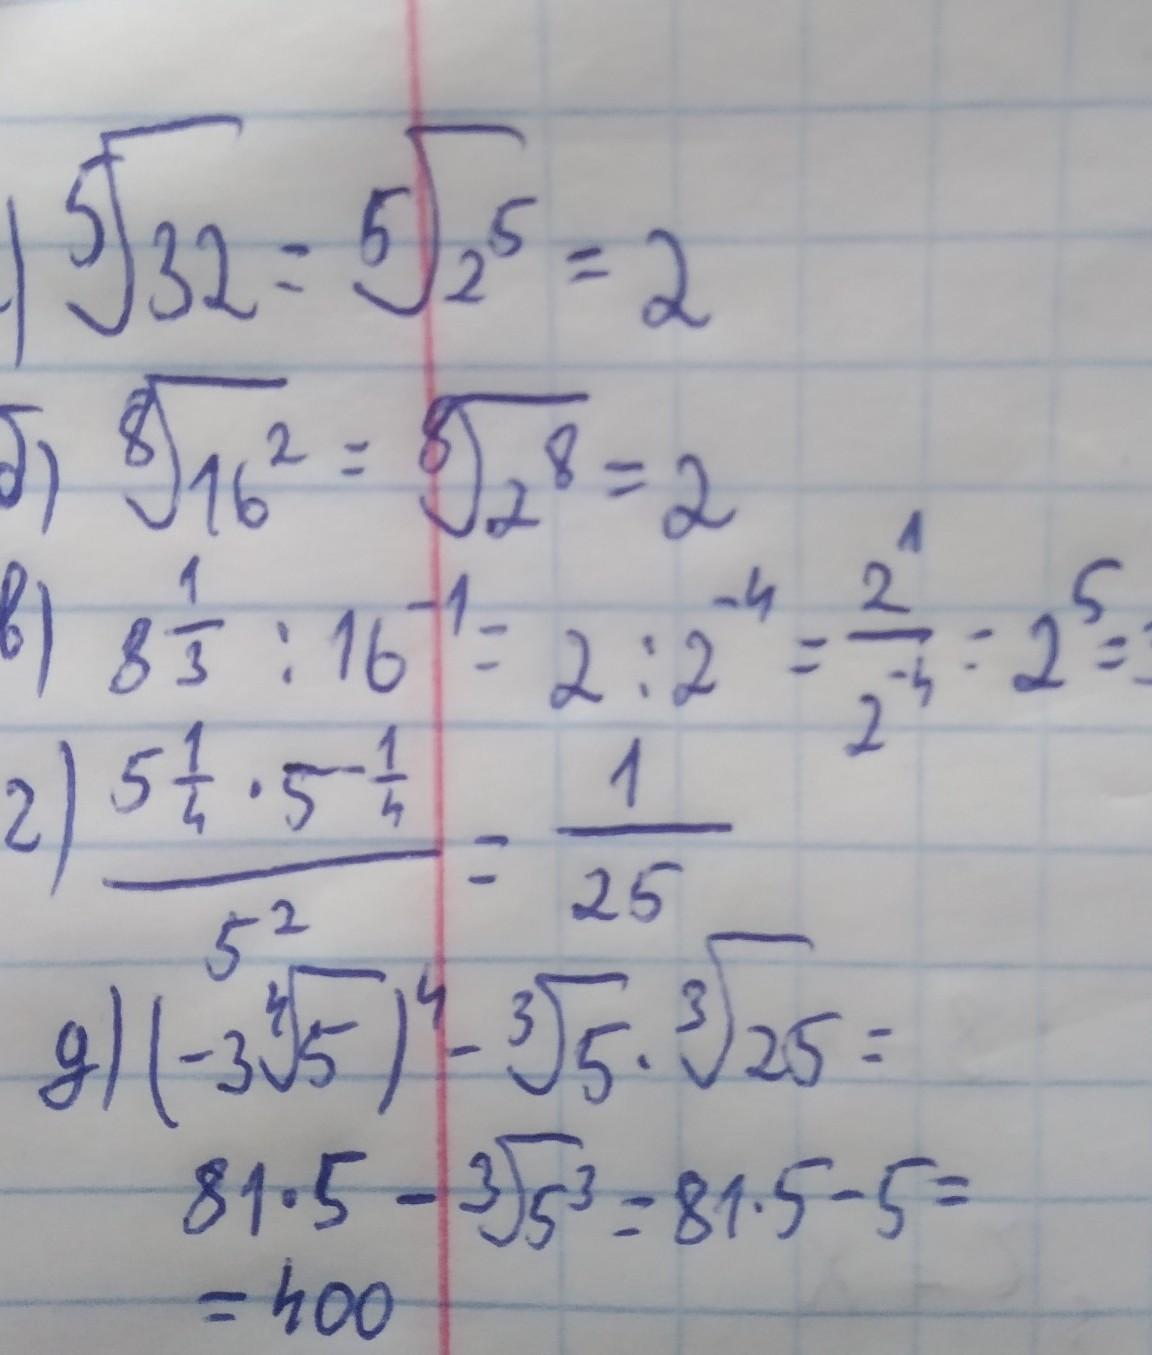 ) ⁵√32 = ⁵√2⁵ = 2
б) ⁸√16² = ⁸√2⁸ = 2
в) 8^(1/3) : 16⁻¹ = 2 : 2⁻⁴ = 2¹/2⁻⁴ = 2⁵ =
г) (5^(1/4) · 5^(-1/4))/5² = 1/25
д) (-3⁴√5)⁴ - ³√5 · ³√25 =
81·5 - ³√5³ = 81·5 - 5 =
= 400